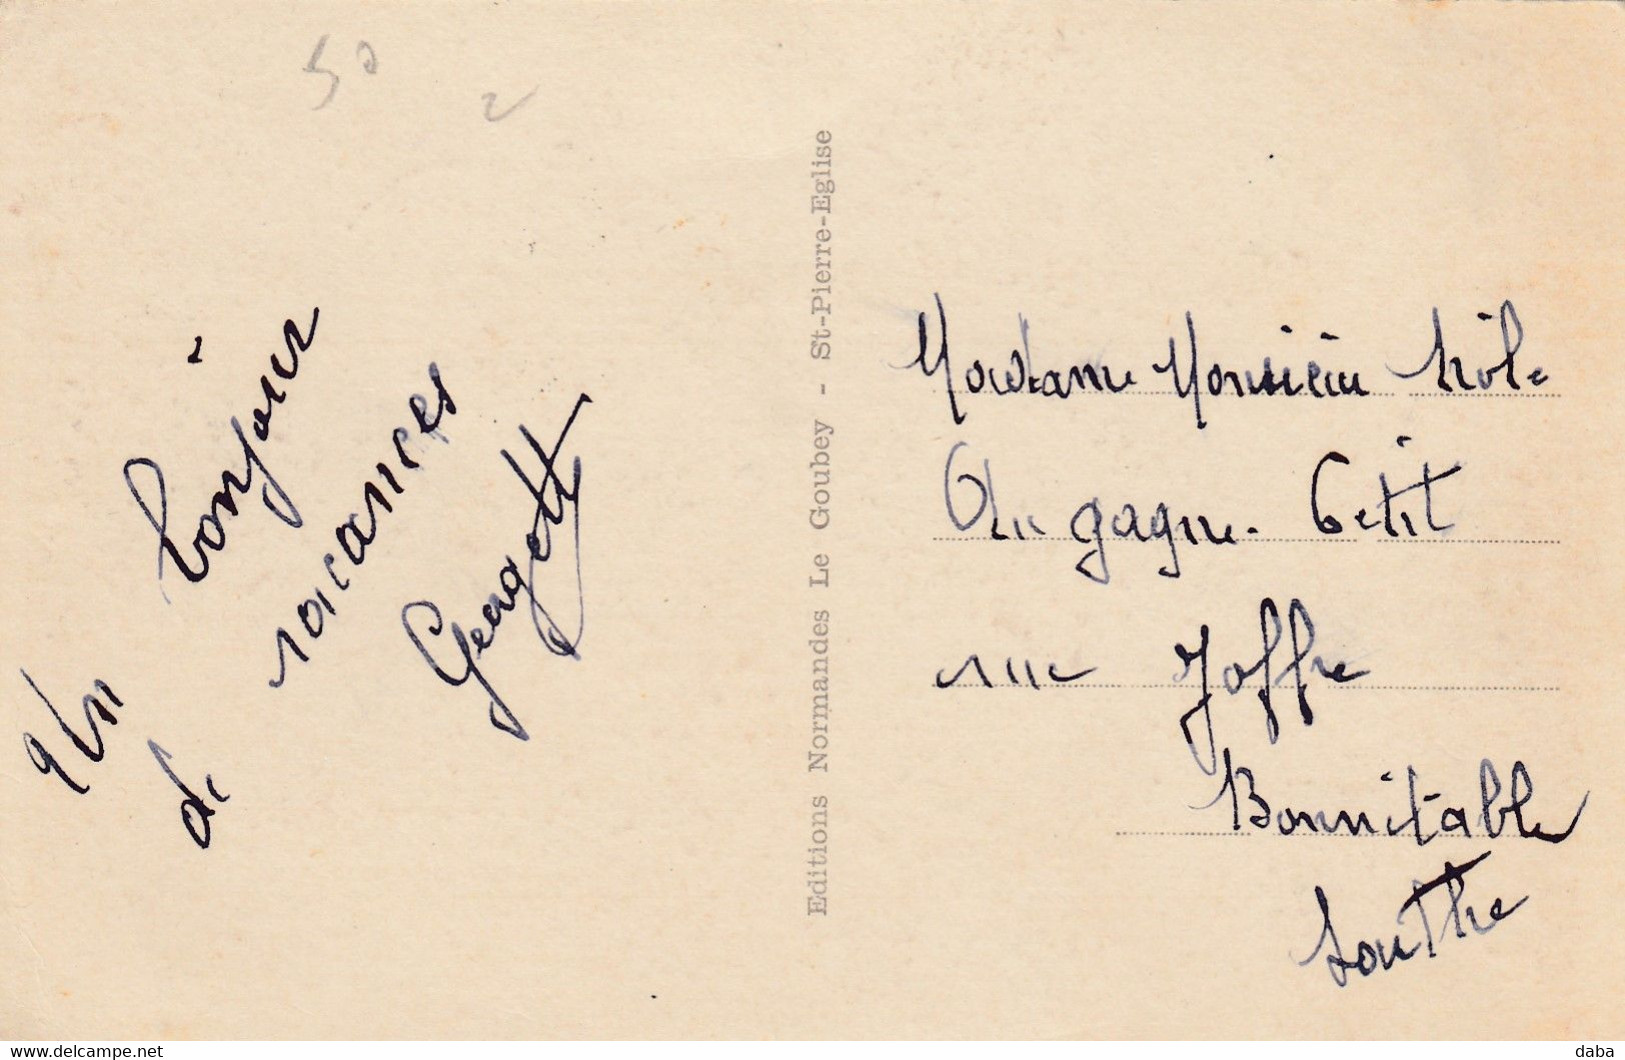 50
2
Un bonjour
de vacances
Georgette
Editions Normandes Le Goubey - St-Pierre-Eglise
Madame Monsieur
Au gagne-Petit
rue Joffre
Bonnétable
Sarthe
delcampe.net
daba